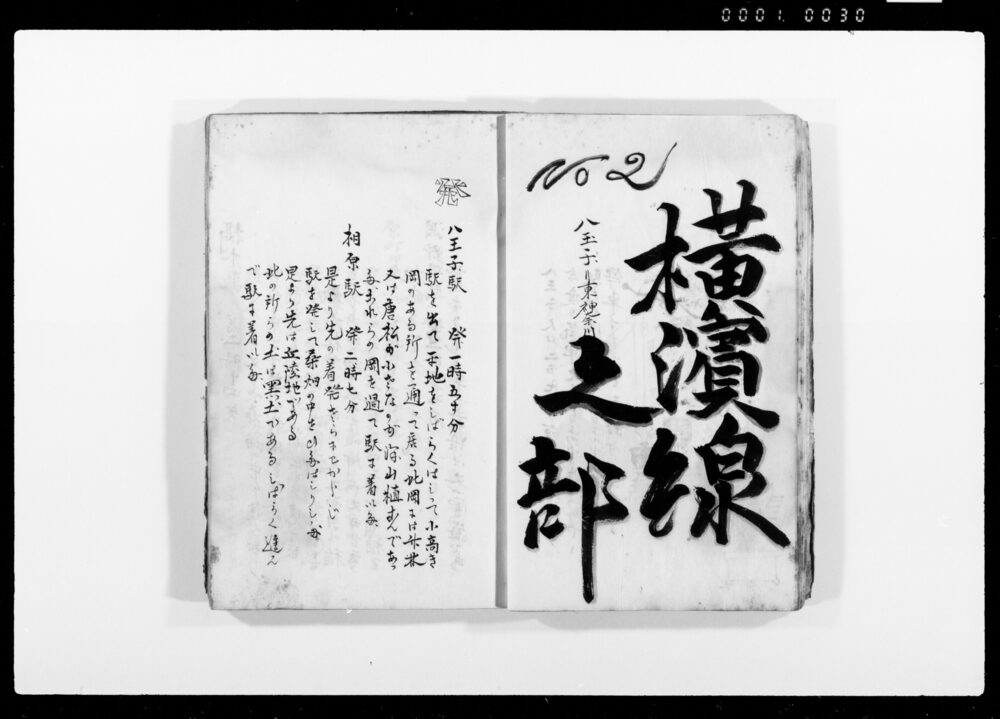 0001. 0030
No 2
横濱線
之部
八王子ヨリ東神奈川
発
八王子駅 発一時五十分
駅を出て平地をしばらくはしって小高き
岡のある所を通って居る此岡には雑木
又は唐松の小さなのが沢山植
岡を過て駅に着いた
相原駅 発二時七分
是より先の着発
駅を発して桑畑の中を
是より先は丘陵地である
此の所らの土は黒土であるしばらく進ん
で駅に着いた